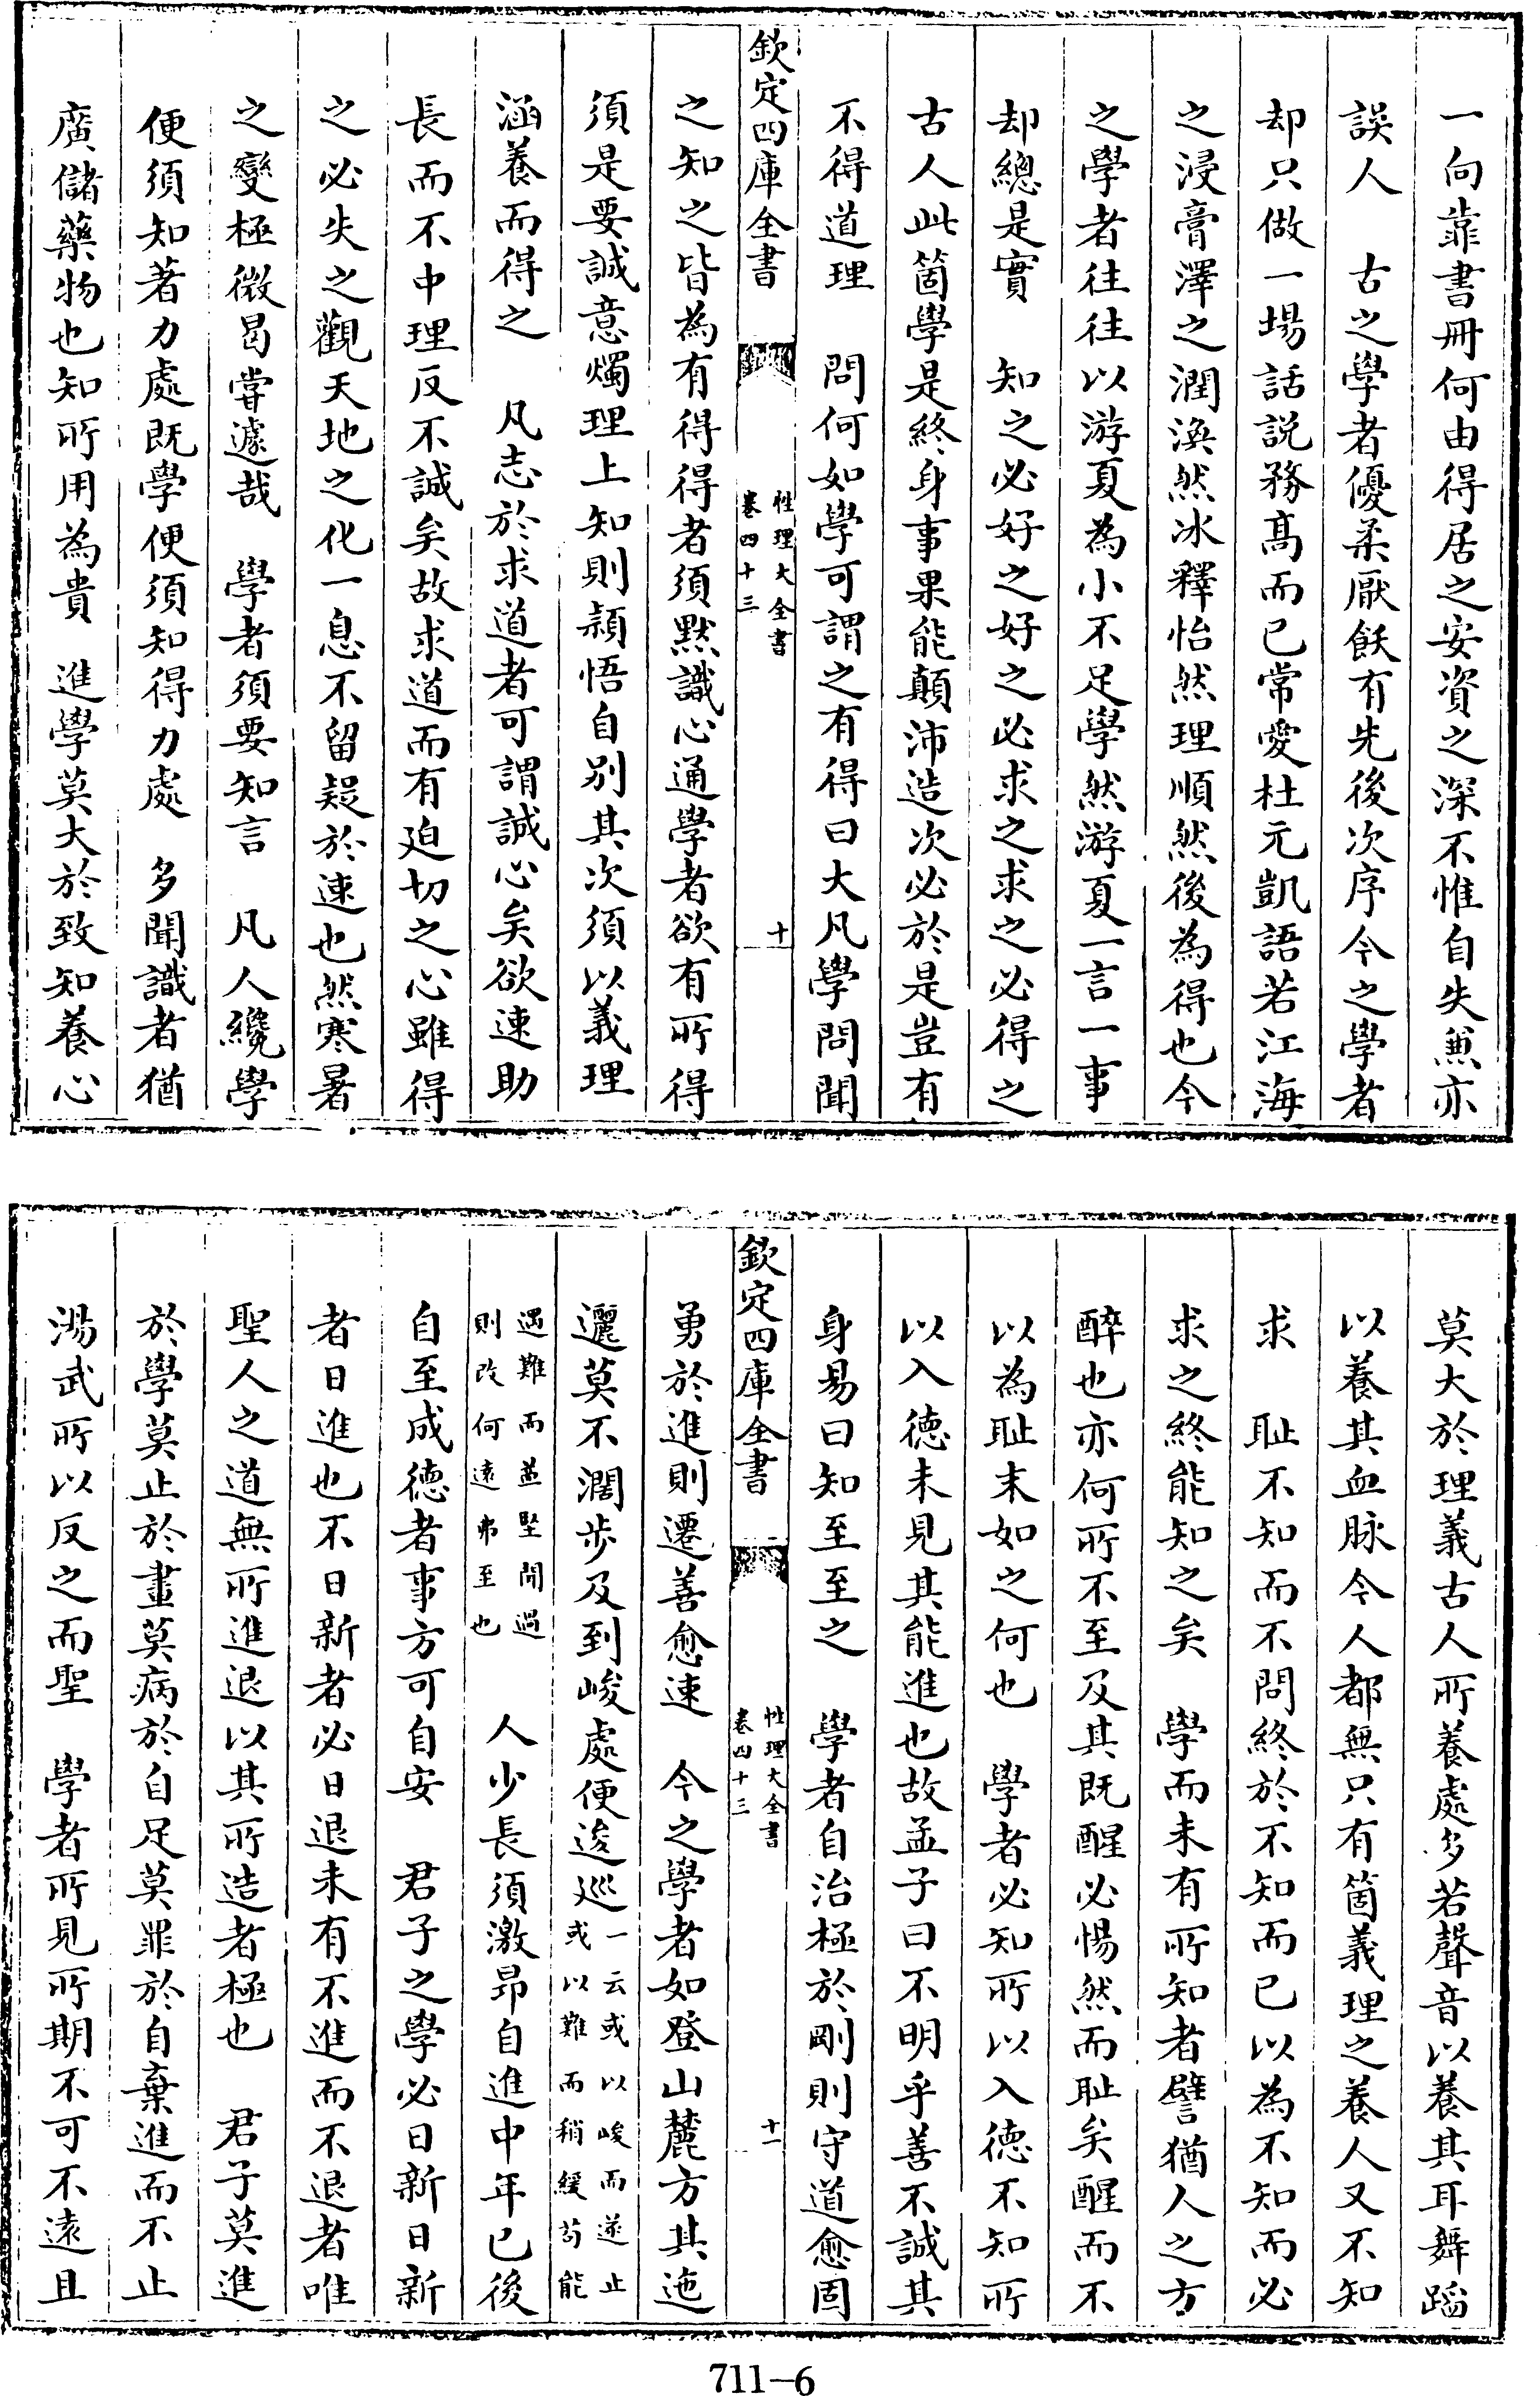 一向靠書冊何由得居之安資之深不惟自失兼亦
誤人　古之學者優柔厭飫有先後次序今之學者
却只做一場話説務髙而已常愛杜元凱語若江海
之浸膏澤之潤渙然冰釋怡然理順然後為得也今
之學者往往以游夏為小不足學然游夏一言一事
却總是實　知之必好之好之必求之求之必得之
古人此箇學是終身事果能顛沛造次必於是豈有
不得道理　問何如學可謂之有得曰大凡學問聞
欽定四庫全書
性理大全書
卷四十三
十
之知之皆為有得得者須黙識心通學者欲有所得
須是要誠意燭理上知則頴悟自別其次須以義理
涵養而得之　凡志於求道者可謂誠心矣欲速助
長而不中理反不誠矣故求道而有迫切之心雖得
之必失之觀天地之化一息不留疑於速也然寒暑
之變極微曷嘗遽哉　學者須要知言　凡人纔學
便須知著力處既學便須知得力處　多聞識者猶
廣儲藥物也知所用為貴　進學莫大於致知養心
莫大於理義古人所養處多若聲音以養其耳舞蹈
以養其血脉今人都無只有箇義理之養人又不知
求　耻不知而不問終於不知而已以為不知而必
求之終能知之矣　學而未有所知者譬猶人之方
醉也亦何所不至及其既醒必惕然而耻矣醒而不
以為耻末如之何也　學者必知所以入德不知所
以入德未見其能進也故孟子曰不明乎善不誠其
身易曰知至至之　學者自治極於剛則守道愈固
欽定四庫全書
性理大全書
卷四十三
十一
勇於進則遷善愈速　今之學者如登山麓方其迤
邐莫不濶歩及到峻處便逡巡一云或以峻而遂止
或以難而稍緩苟能
遇難而益堅聞過
則改何逺弗至也　人少長須激昂自進中年已後
自至成德者事方可自安　君子之學必日新日新
者日進也不日新者必日退未有不進而不退者唯
聖人之道無所進退以其所造者極也　君子莫進
於學莫止於畫莫病於自足莫罪於自棄進而不止
湯武所以反之而聖　學者所見所期不可不遠且
711-6